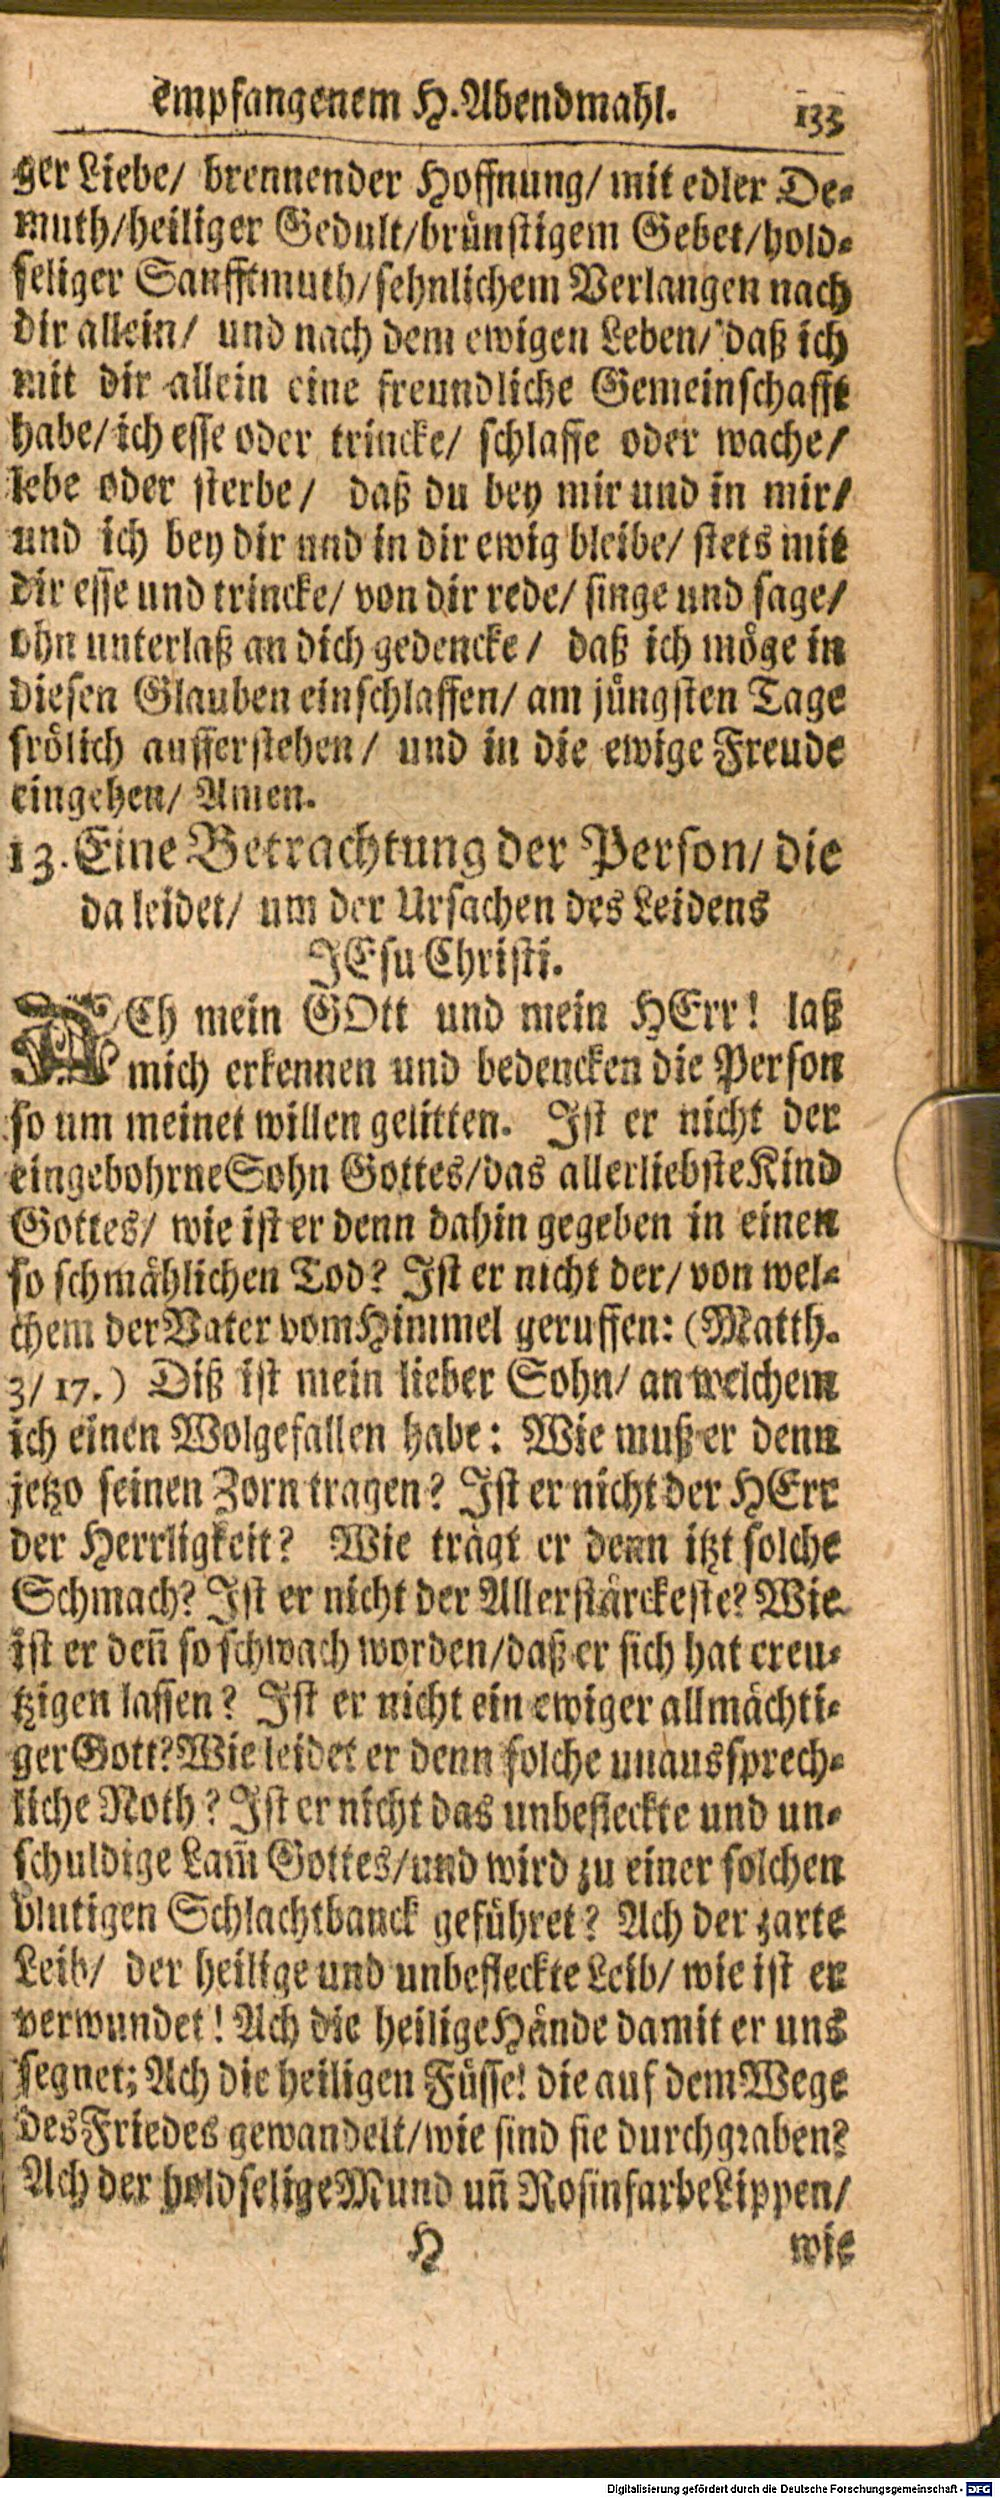 empfangenem H. Abendmahl. 133
ger Liebe/ brennender Hoffnung/ mit edler De-
muth/ heiliger Gedult/ brünstigem Gebet/ hold-
seliger Sanfftmuth/ sehnlichem Verlangen nach
dir allein/ und nach dem ewigen Leben/ daß ich
mit dir allein eine freundliche Gemeinschafft
habe/ ich esse oder trincke/ schlaffe oder wache/
lebe oder sterbe/ daß du bey mir und in mir/
und ich bey dir und in dir ewig bleibe/ stets mit
dir esse und trincke/ von dir rede/ singe und sage/
ohn unterlaß an dich gedencke/ daß ich möge in
diesen Glauben einschlaffen/ am jüngsten Tage
frölich aufferstehen/ und in die ewige Freude
eingehen/ Amen.
13. Eine Betrachtung der Person/ die
da leidet/ um der Ursachen des Leidens
JEsu Christi.
ACh mein GOtt und mein HErr! laß
mich erkennen und bedencken die Person
so um meinet willen gelitten. Ist er nicht der
eingebohrne Sohn Gottes/ das allerliebste Kind
Gottes/ wie ist er denn dahin gegeben in einen
so schmählichen Tod? Ist er nicht der/ von wel-
chem der Vater vom Himmel geruffen: (Matth.
3/ 17.) Diß ist mein lieber Sohn/ an welchem
ich einen Wolgefallen habe: Wie muß er denn
jetzo seinen Zorn tragen? Ist er nicht der HErr
der Herrligkeit? Wie trägt er denn itzt solche
Schmach? Ist er nicht der Allerstärckeste? Wie
ist er deñ so schwach worden/ daß er sich hat creu-
tzigen lassen? Ist er nicht ein ewiger allmächti-
ger Gott? Wie leidet er denn solche unaussprech-
liche Noth? Ist er nicht das unbefleckte und un-
schuldige Lam̃ Gottes/ und wird zu einer solchen
blutigen Schlachtbanck geführet? Ach der zarte
Leib/ der heilige und unbefleckte Leib/ wie ist er
verwundet! Ach die heilige Hände damit er uns
segnet; Ach die heiligen Füsse! die auf dem Wege
des Friedes gewandelt/ wie sind sie durchgraben?
Ach der holdselige Mund uñ Rosinfarbe Lippen/
H wie
Digitalisierung gefördert durch die Deutsche Forschungsgemeinschaft - DFG